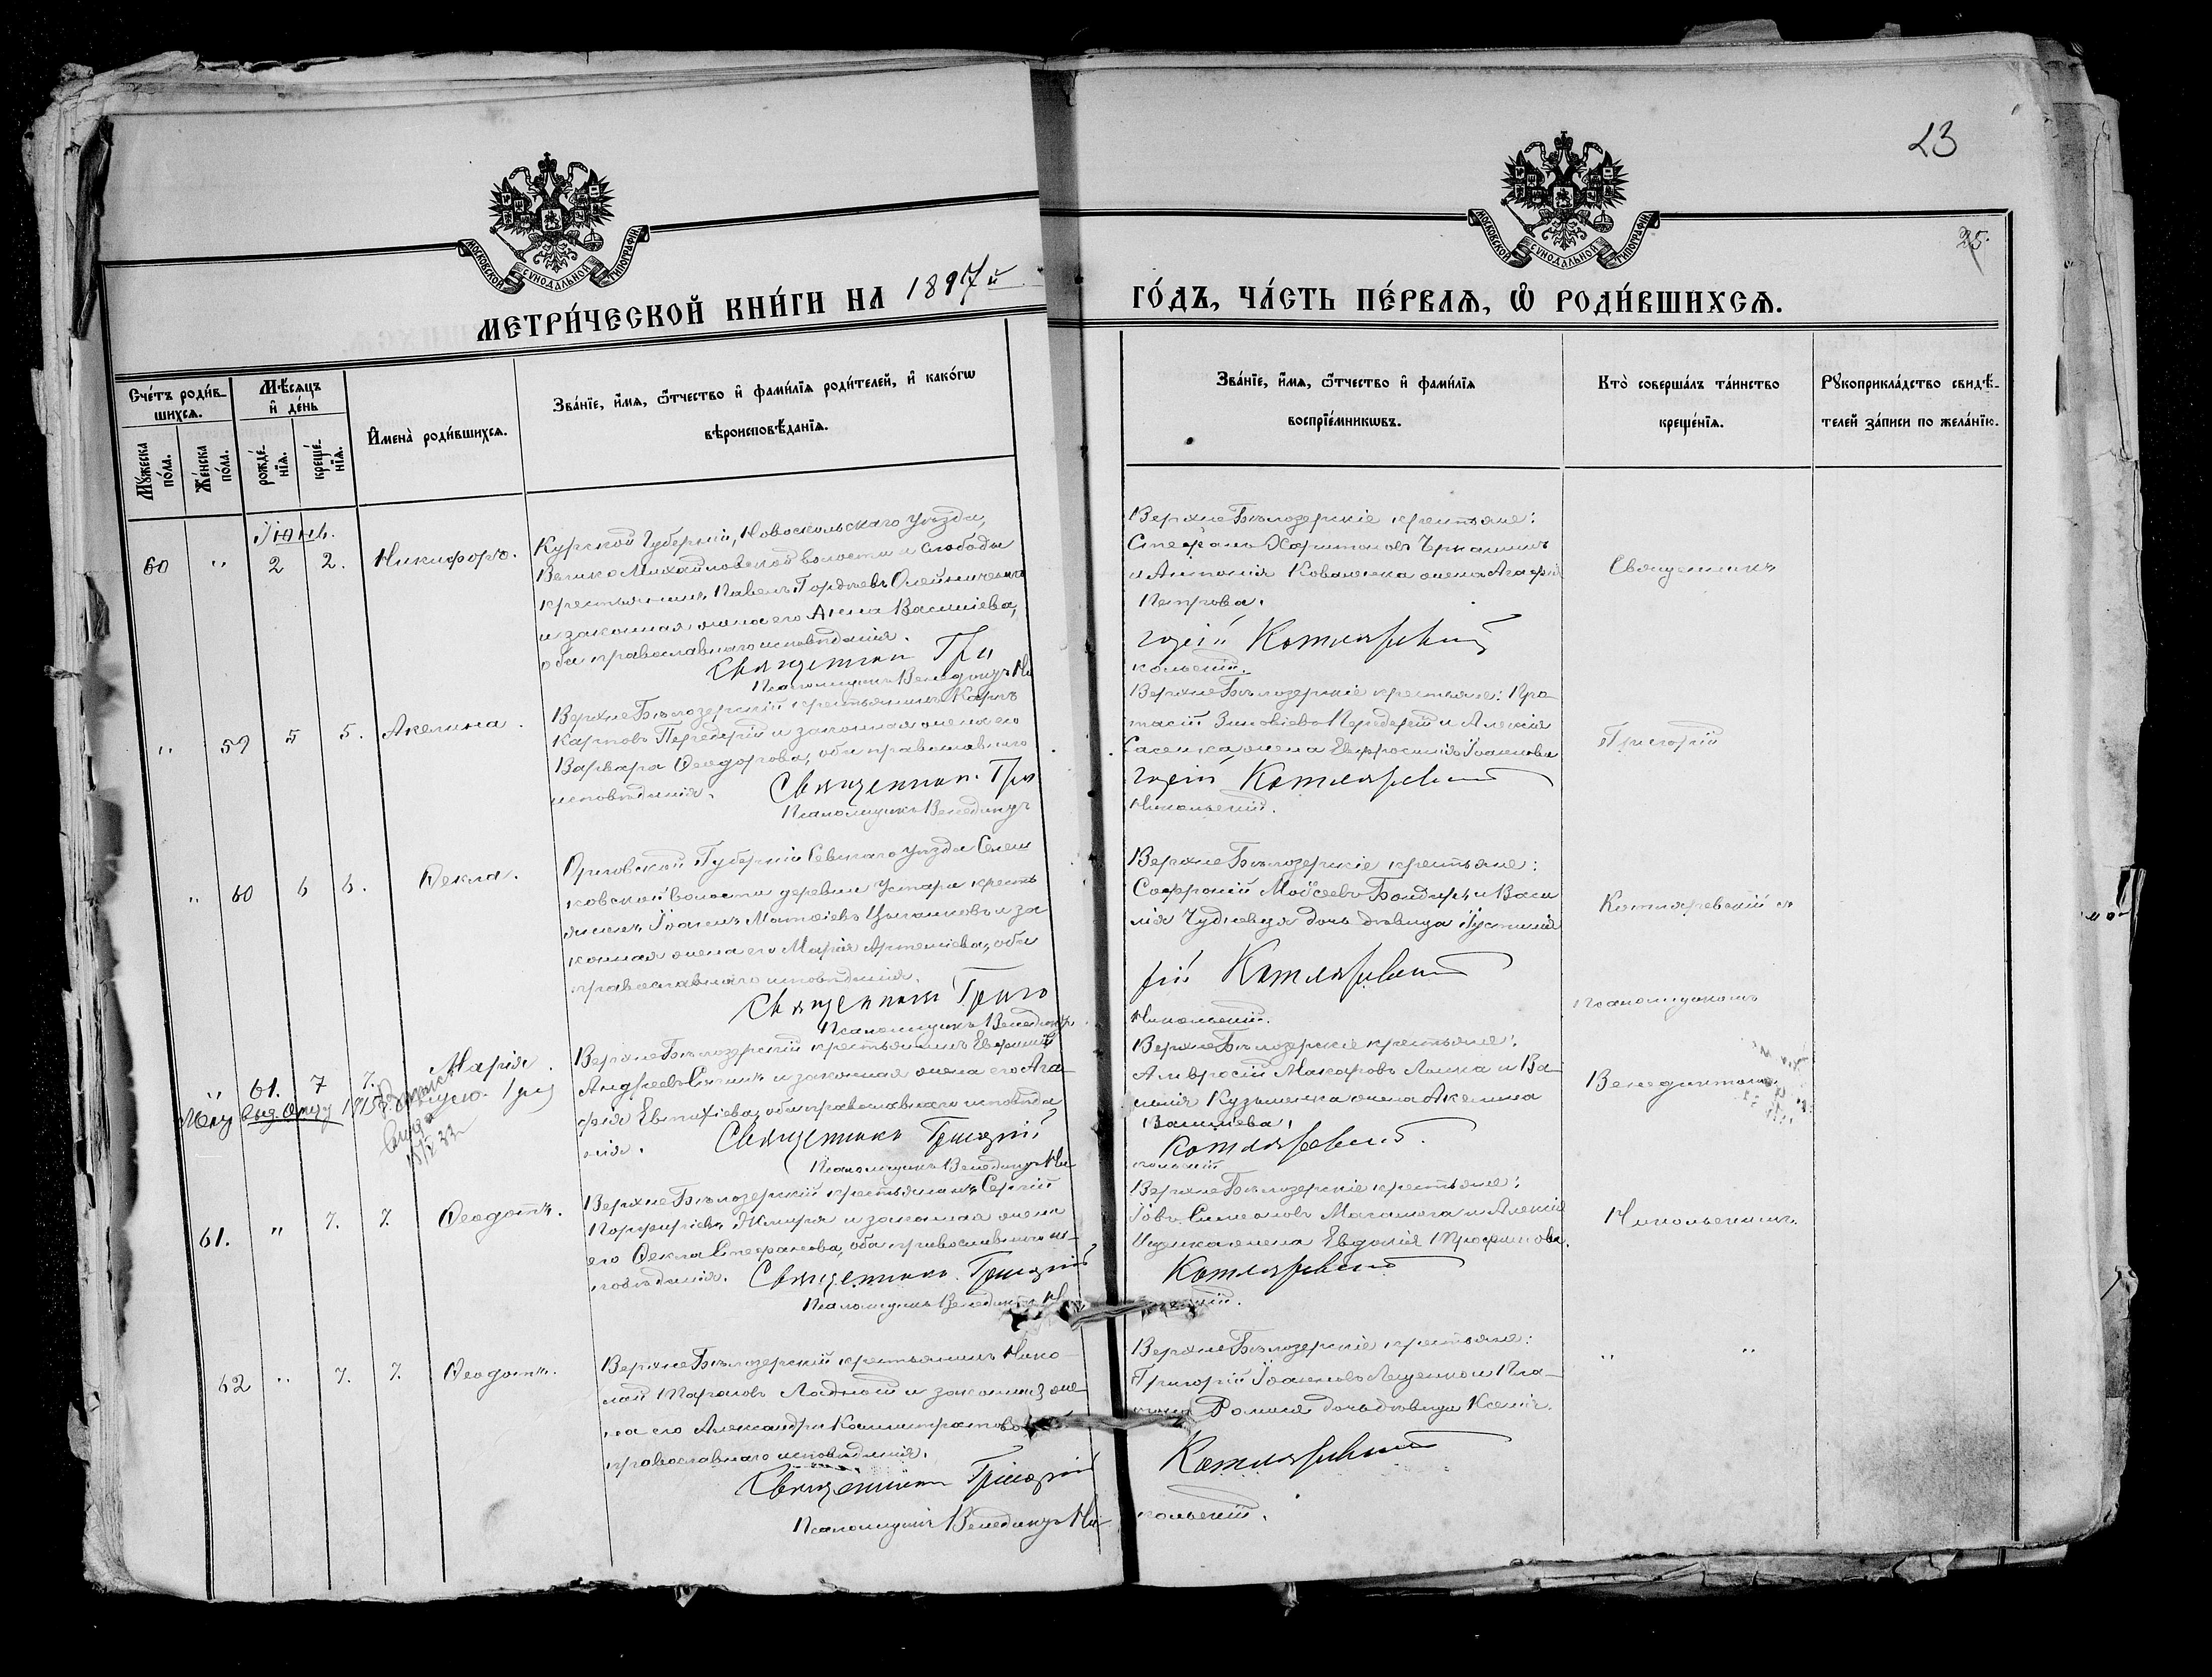 23
25.
МОСКОВСКОЙ СѴНОДАЛЬНОЙ ТИПОГРАФІИ
МОСКОВСКОЙ СѴНОДАЛЬНОЙ ТИПОГРАФІИ
МЕТРИ́ЧЕСКОЙ КНИ́ГИ НА 1897й
ГО́ДЪ, ЧА́СТЬ ПЕ́РВАѦ, Ѽ РОДИ́ВШИХСѦ.
Сче́тъ роди́в-
шихсѧ.
Мꙋжеска по́ла.
Же́нска по́ла.
Мѣ́сѧцъ и҆ де́нь
рожде́-
нїѧ.
креще́-
нїѧ.
И҆мена̀ роди́вшихсѧ.
Зва́нїе, и҆́мѧ, ѻ҆́тчество и҆ фами́лїѧ роди́телей, и҆ како́гѡ
вѣроисповѣ́данїѧ.
Зва́нїе, и҆́мѧ, ѻ҆́тчество и҆ фами́лїѧ
воспрїе́мникѡвъ.
Кто̀ соверша́лъ та́инство
креще́нїѧ.
Рꙋкоприкла́дство свидѣ́-
телей за́писи по жела́нїю.
Іюнь.
60 " 2 2. Никифоръ.
Курской Губерніи, Новооскольскаго уѣзда,
Велико Михайловской волости и слободы
крестьянинъ Павелъ Гордѣевъ Олейниченко
и законная жена его Анна Василіева,
оба православнаго исповѣданія.
Священник Гри
Псаломщикъ Венедиктъ Ни
Верхне Бѣлозерскіе крестьяне:
Стефанъ Харитоновъ
и Антонія Коваленка жена Агафія
Петрова.
горій Котляревскій
кольскій.
Священникъ
" 59 5 5. Акелина.
Верхне Бѣлозерскій крестьянинъ Карпъ
Карповъ Передерій и законная жена его
Варвара Ѳеодорова, оба православнаго
исповѣданія. Священник Гри
Псаломщикъ Венедиктъ
Верхне Бѣлозерскіе крестьяне: Про-
тасій Зиновіевъ Передерій и Алексія
Сасенка жена Евфросинія Іоаннова
горій Котляревскій
Никольскій.
Григорій
" 60 6 6. Ѳекла.
Орловской Губерніи Севскаго уѣзда
ковской волости деревни Устари кресть
янинъ Іоаннъ Матѳіевъ Цыганковъ и за
конная жена его Марія Артеміева, оба
православнаго исповѣданія.
Священникъ Григо
Псаломщикъ Венедиктъ
Верхне Бѣлозерскіе крестьяне:
Софроній Моѵсеевъ Бондарь и Васи
лія Чудневца дочь дѣвица Іустинія
рій Котляревскій
Никольскій.
Котляревскій съ
псаломщикомъ
" 61. 7 7. Марія.
Верхне Бѣлозерскій крестьянинъ Евфимій
Андреевъ и законная жена его Ага-
фія Евтихіева, оба православнаго исповѣда
нія. Священникъ Григорій
Псаломщикъ Венедиктъ Ни-
Верхне Бѣлозерскіе крестьяне:
Амвросій Макаровъ и Ва-
силія Кузьменка жена Акелина
Василіева.
Котляревскій.
кольскій
Венедиктомъ
61. " 7. 7. Ѳеодотъ.
Верхне Бѣлозерскій крестьянинъ Сергій
Порфиріевъ Жмиря и законная жена
его Ѳекла Стефанова, оба православнаго ис-
повѣданія. Священникъ Григорій
Псаломщикъ Венедиктъ
Верхне Бѣлозерскіе крестьяне:
Іовъ Симеоновъ и Алексія
жена Евдокія Трофимова.
Котляревскій
Никольскимъ.
62 " 7. 7. Ѳеодотъ.
Верхне Бѣлозерскій крестьянинъ Нико-
лай Тарасовъ Ладной и законная же-
на его Александра Каллистратова
православнаго исповѣданія.
Священникъ Григорій
Псаломщикъ Венедиктъ Ни-
Верхне Бѣлозерскіе крестьяне:
Григорій Іоанновъ Лещенко и Пла-
дочь дѣвица Ксенія.
Котляревскій
кольскій.
" "